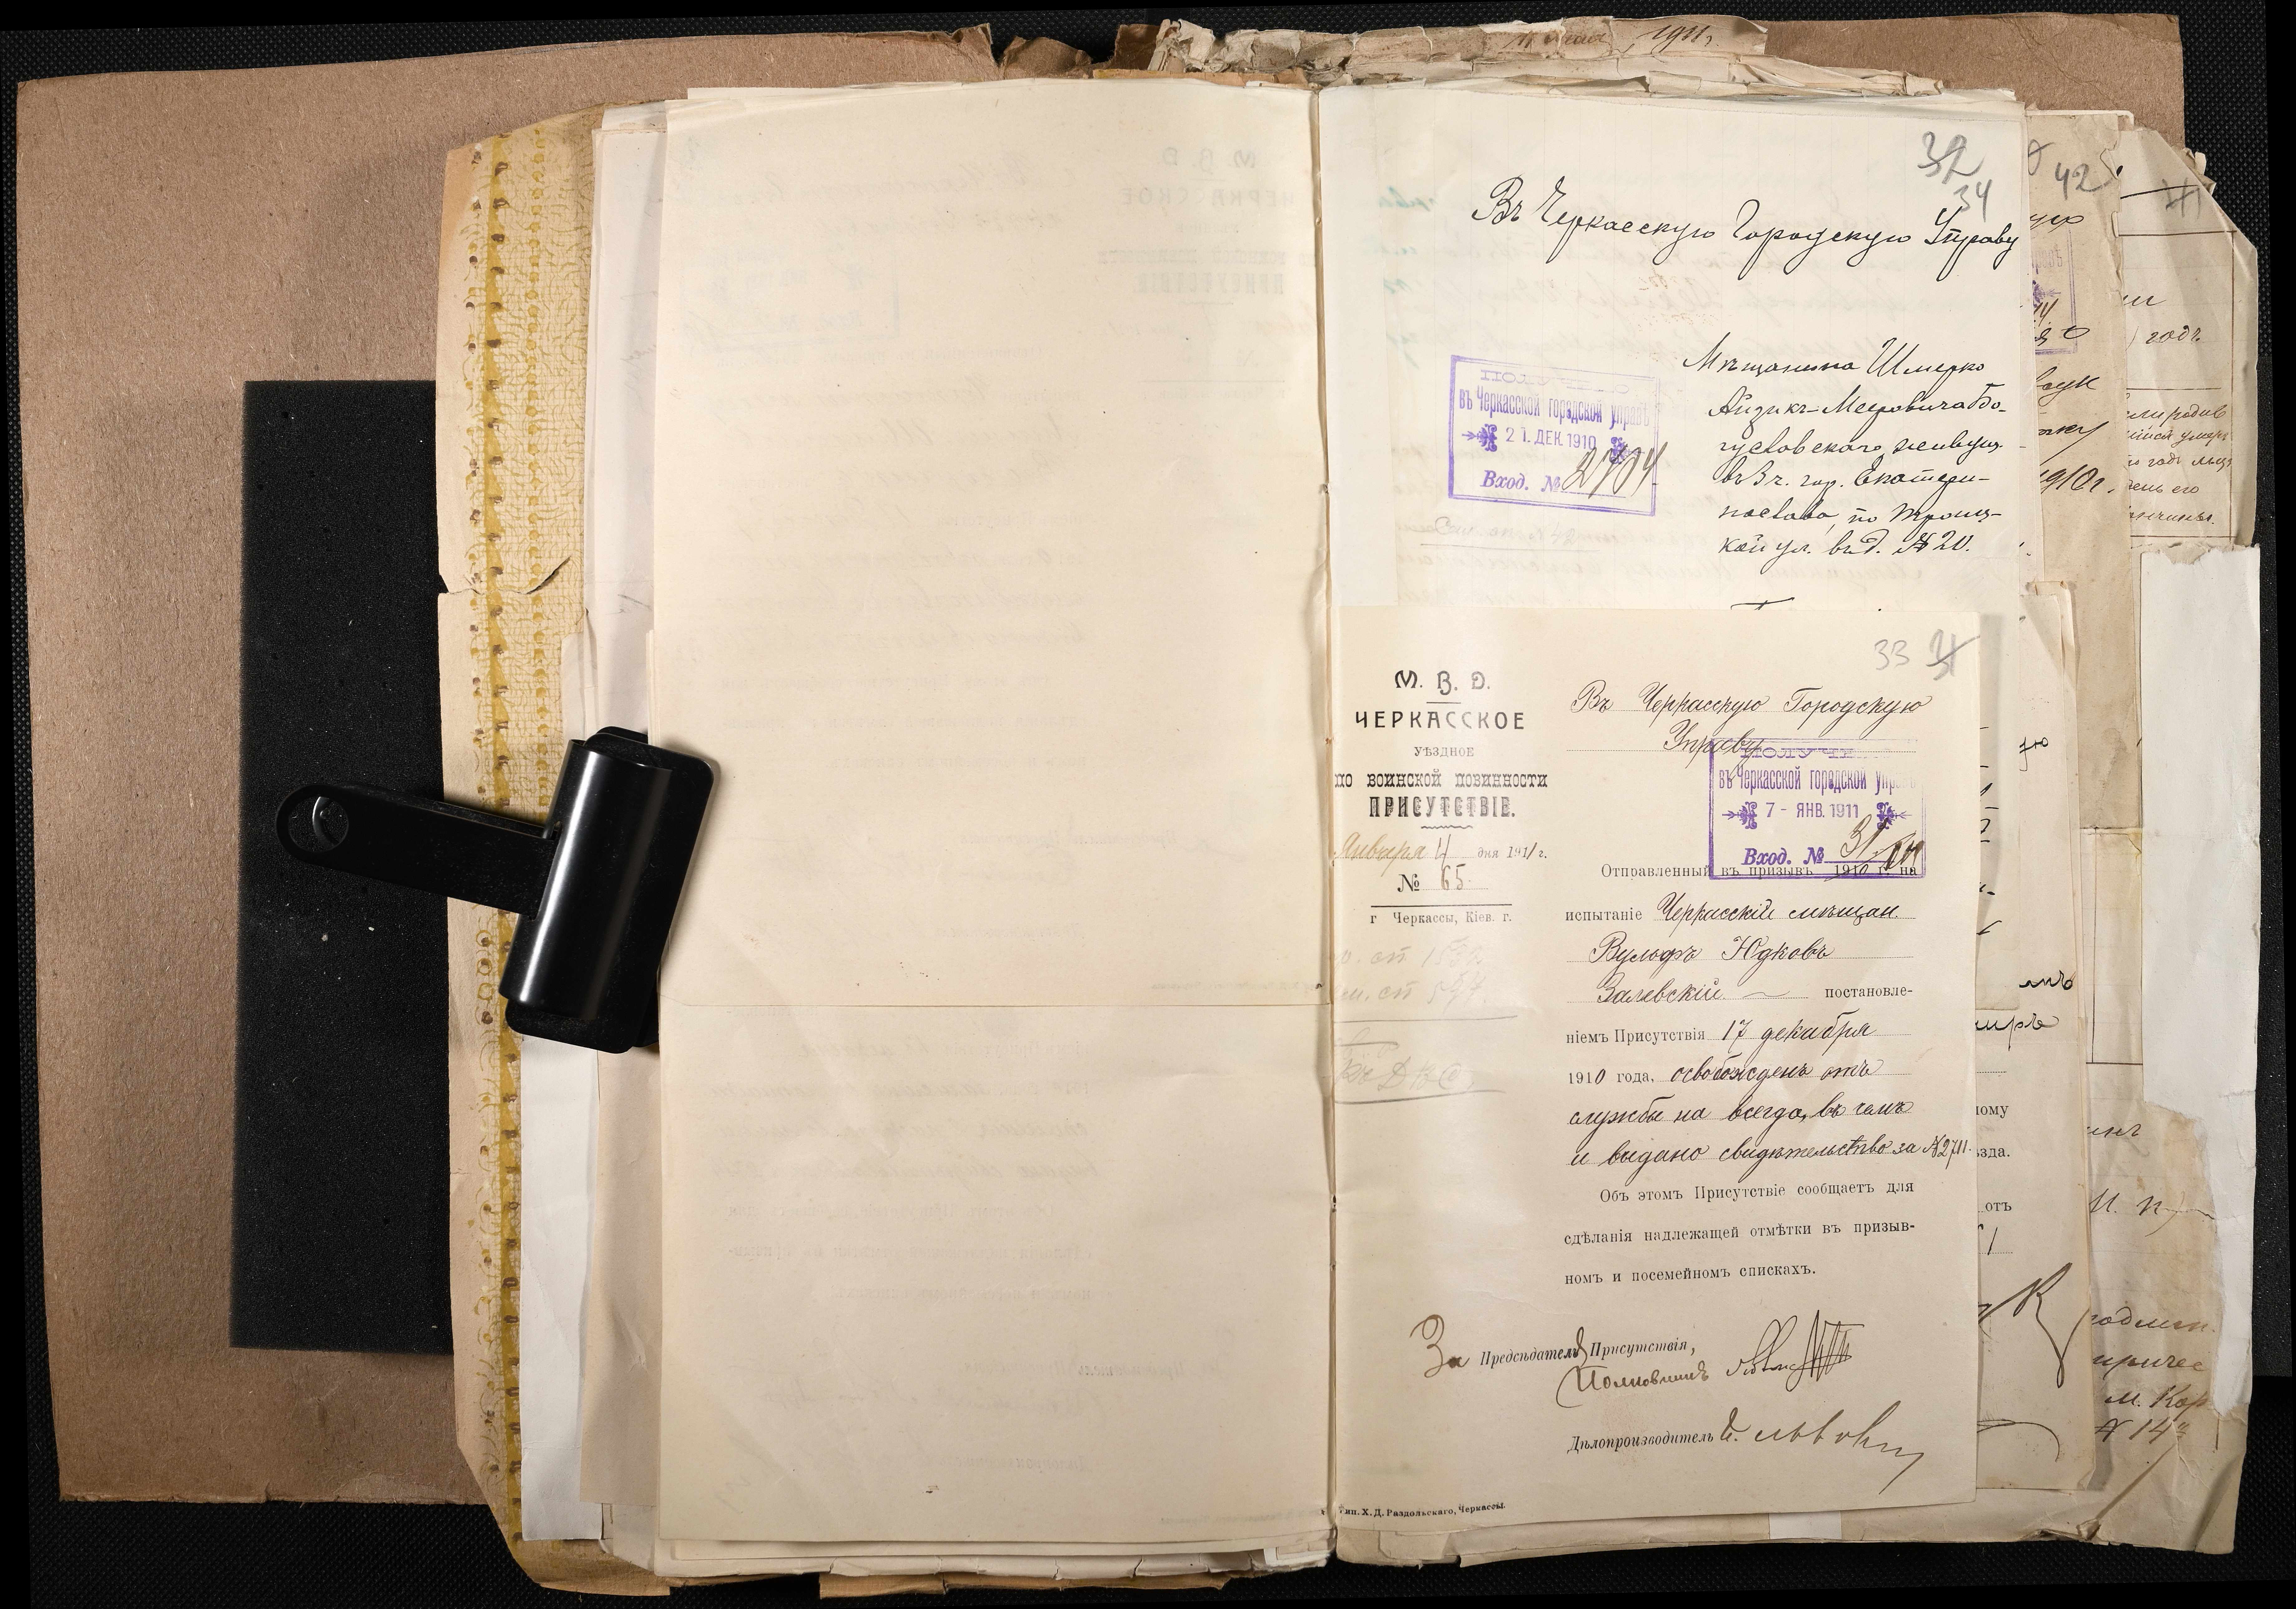 1911 г.
32
34
Въ Черкасскую Городскую Управу
Мѣщанина Шмерко
Айзикъ-Мееровича Бо-
гуславскаго, живущ.
въ г. гор. Екатери-
нославѣ, по Троиц-
кой ул. въ д. № 20.
въ Черкасской городской управѣ
21. ДЕК. 1910
Вход. № 2704
33 31
М. В. Д.
ЧЕРКАССКОЕ
УѢЗДНОЕ
ПО ВОИНСКОЙ ПОВИННОСТИ
ПРИСУТСТВІЕ.
Января 4 дня 1911 г.
№ 65
г Черкассы, Кіев. г.
Въ Черкасскую Городскую
Управу
ПОЛУЧЕН
въ Черкасской городской управѣ
7 - ЯНВ. 1911
Вход. № 31
Отправленный въ призывъ 1910 г. на
испытаніе Черкасскій мѣщан.
Вульфъ Юдковъ
Залевскій — постановле-
ніемъ Присутствія 17 декабря
1910 года, освобожденъ отъ
службы на всегда, въ чемъ
и выдано свидѣтельство за № 2711.
Объ этомъ Присутствіе сообщаетъ для
сдѣланія надлежащей отмѣтки въ призыв-
номъ и посемейномъ спискахъ.
За Предсѣдателя Присутствія,
Полковникъ
Дѣлопроизводитель
Тип. Х. Д. Раздольскаго, Черкассы.
42
годъ
1910 г.
зда.
отъ
И. п.
м. Кор
№ 14